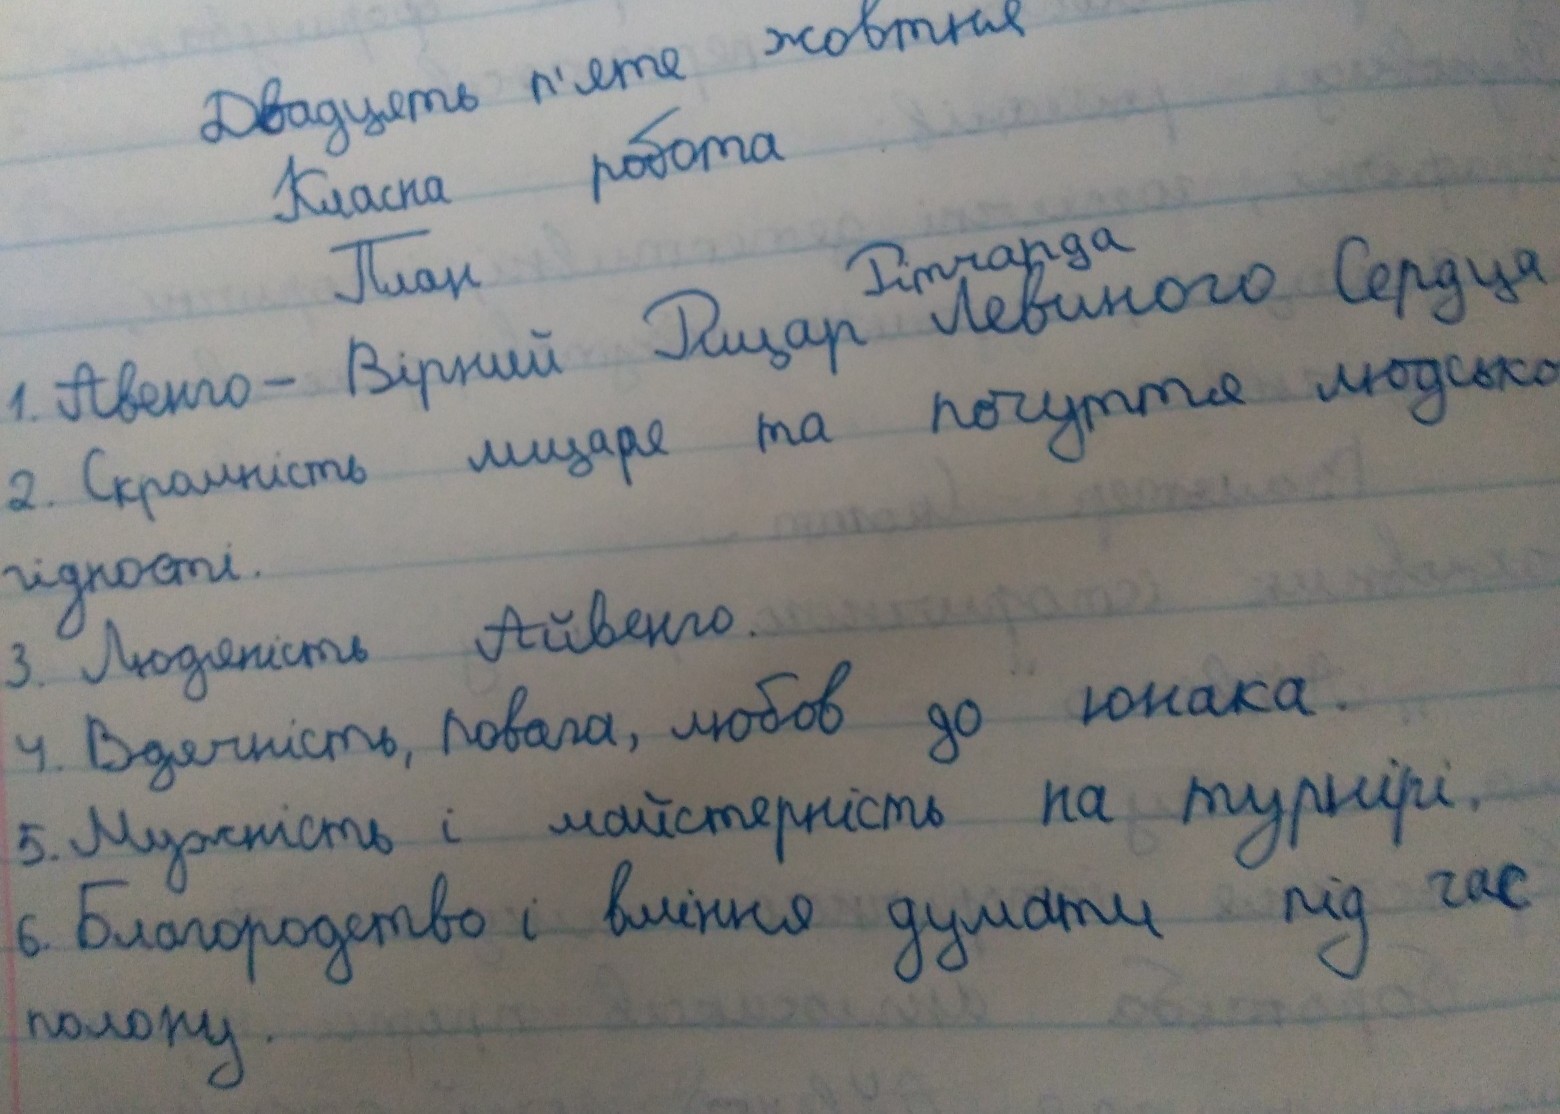 Двадцять п'яте жовтня
Класна робота
План
Річарда
1. Авенго - Вірний Рицар Левиного Серця
2. Скромність лицаря та почуття людсько
гідності.
3. Людяність Айвенго.
4. Вдячність, повага, любов до юнака.
5. Мужність і майстерність на турнірі.
6. Благородство і вміння думати під час
полону.